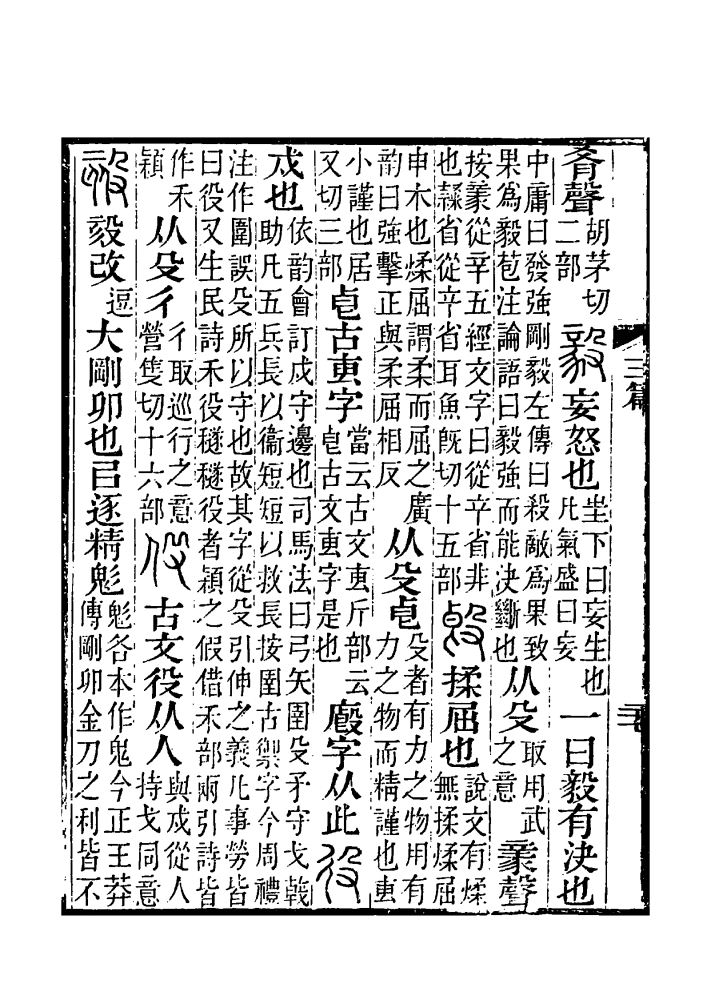 三篇
肴聲胡茅切二部毅妄怒也坐下曰妄生也凡氣盛曰妄一曰毅有決也
中庸曰發強剛毅左傳曰殺敵爲果致果爲毅苞注論語曰毅強而能決斷也从殳取用武之意豙聲
按豙從辛五經文字曰從辛省非也豙省從辛省耳魚旣切十五部𣪘揉屈也說文有煣無揉煣屈
申木也煣屈謂柔而屈之廣韵曰強擊正與柔屈相反从殳皀殳者有力之物用有力之物而精謹也叀
小謹也居又切三部皀古叀字當云古文叀斤部云皀古文叀字是也廏字从此役
戍也依韵會訂戍守邊也司馬法曰弓矢圍殳矛守戈戟助凡五兵長以衞短短以救長按圍古禦字今周禮
注作圍誤殳所以守也故其字從殳引伸之義凡事勞皆曰役又生民詩禾役穟穟役者穎之假借禾部兩引詩皆
作禾穎从殳彳彳取巡行之意營隻切十六部伇古文役从人與戍從人持戈同意
㱾毅改逗大剛卯也㠯逐精鬽鬽各本作鬼今正王莽傳剛卯金刀之利皆不